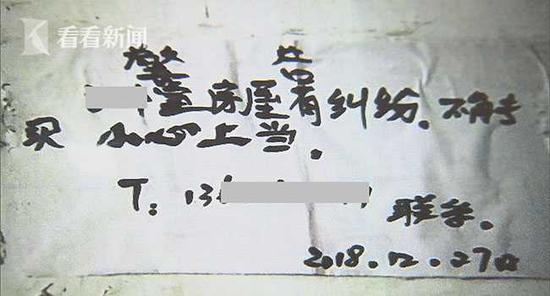 看看新闻
警告
室房屋有纠纷.不
买 小心上当.
T: 13 联系.
2018.12.27日